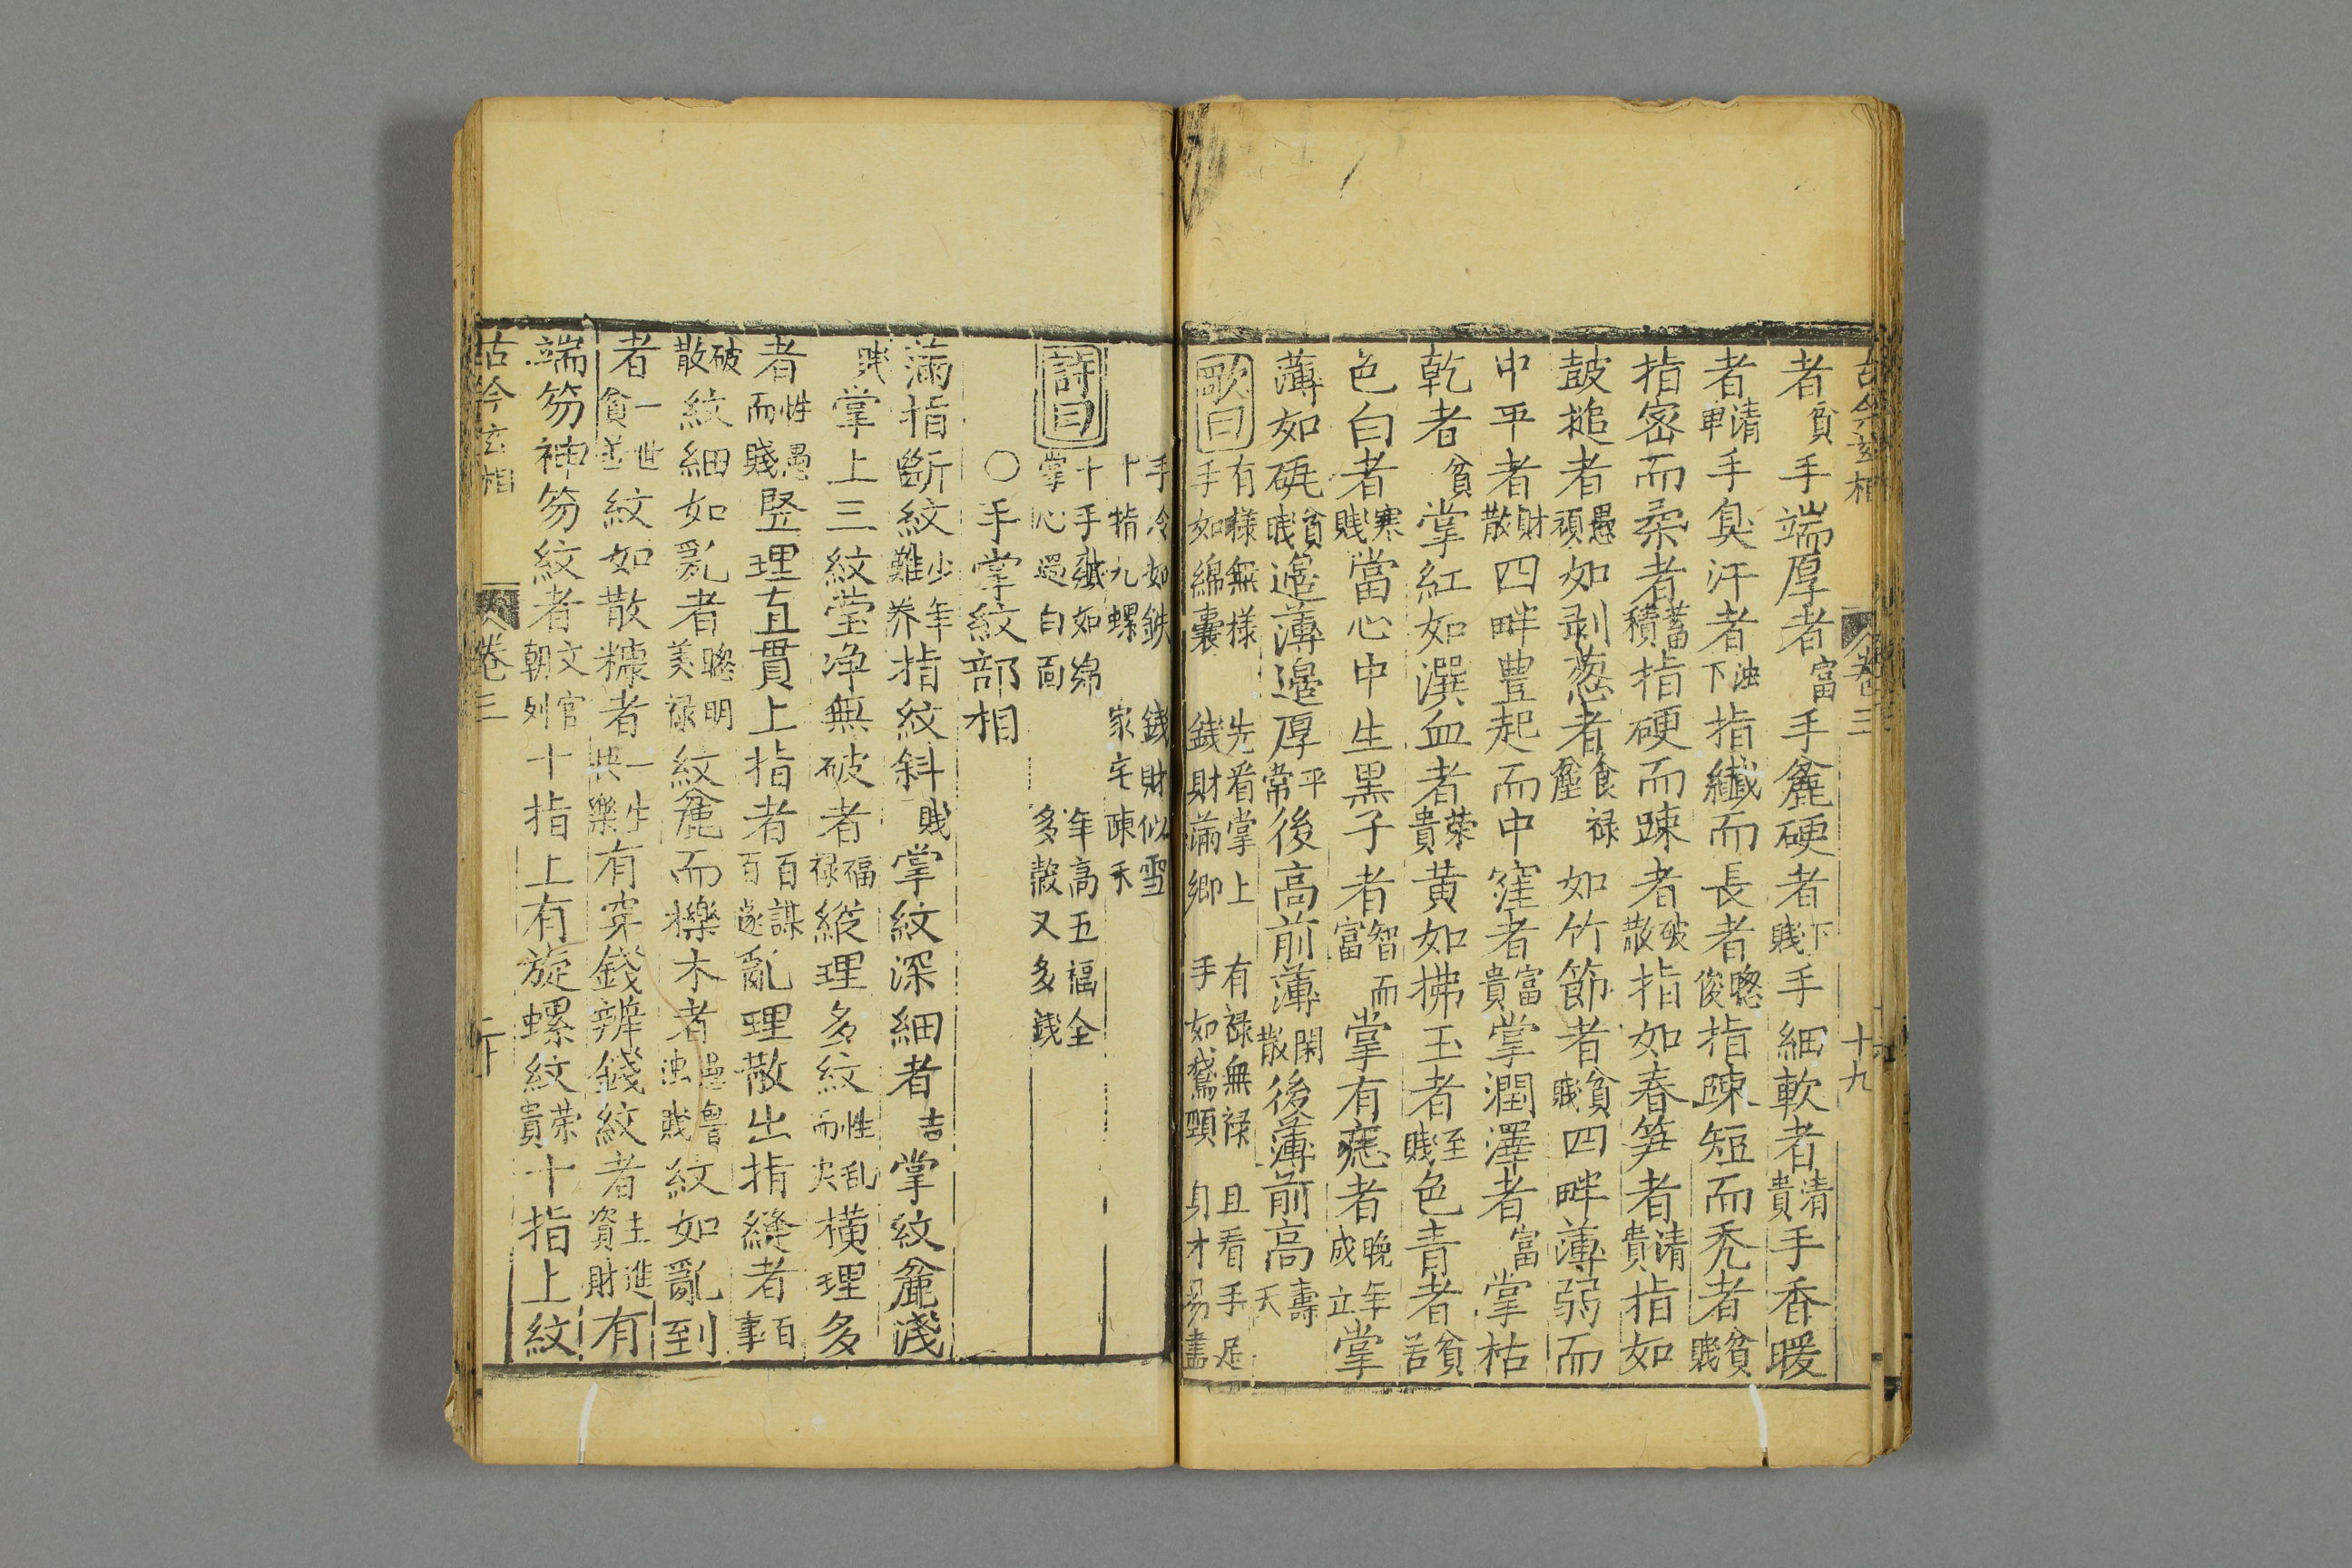 古今玄相 卷三 十九
者貧手端厚者富手麄硬者下賤手細軟者清貴手香暖
者清手臭汗者濁下指纖而長者聰俊指踈短而禿者貧賤
指密而柔者蓄積指硬而踈者破散指如春笋者清貴指如
鼓搥者愚頑如剥葱者食禄如竹節者貧賤四畔薄弱而
中平者財散四畔豊起而中窪者富貴掌潤澤者富掌枯
乾者貧掌紅如潠血者荣貴黄如拂玉者至賤色青者貧苦
色白者寒賤當心中生黒子者智而富掌有應者晚年成立掌
薄如砙貧賤邉薄邉厚平常後高前薄閑散後薄前高壽夭
歌曰 有様無様 先看掌上 有禄無禄 且看手足
手如綿嚢 銭財滿郷 手如鵞頸 身才易盡
手冷如鉄 銭財似雪
十指九螺 家宅踈禾
詩曰 十手纎如綿 年高五福全
掌心還白面 多散又多銭
○手掌紋部相
滿指斷紋少年難养指紋斜賎掌紋深細者吉掌紋麄淺
賎掌上三紋莹净無破者福禄縱理多紋性乱而灾横理多
者性愚而賤竪理直貫上指者百謀百遂亂理散出指縫者百事
破散紋細如乱者聰明美禄紋麄而櫟木者愚魯浊賤紋如亂到
者一世貧苦紋如散糠者一生快樂有穿錢辨錢紋者主進資財有
端笏神笏紋者文官朝列十指上有旋螺紋荣貴十指上紋
古今玄相 卷三 二十